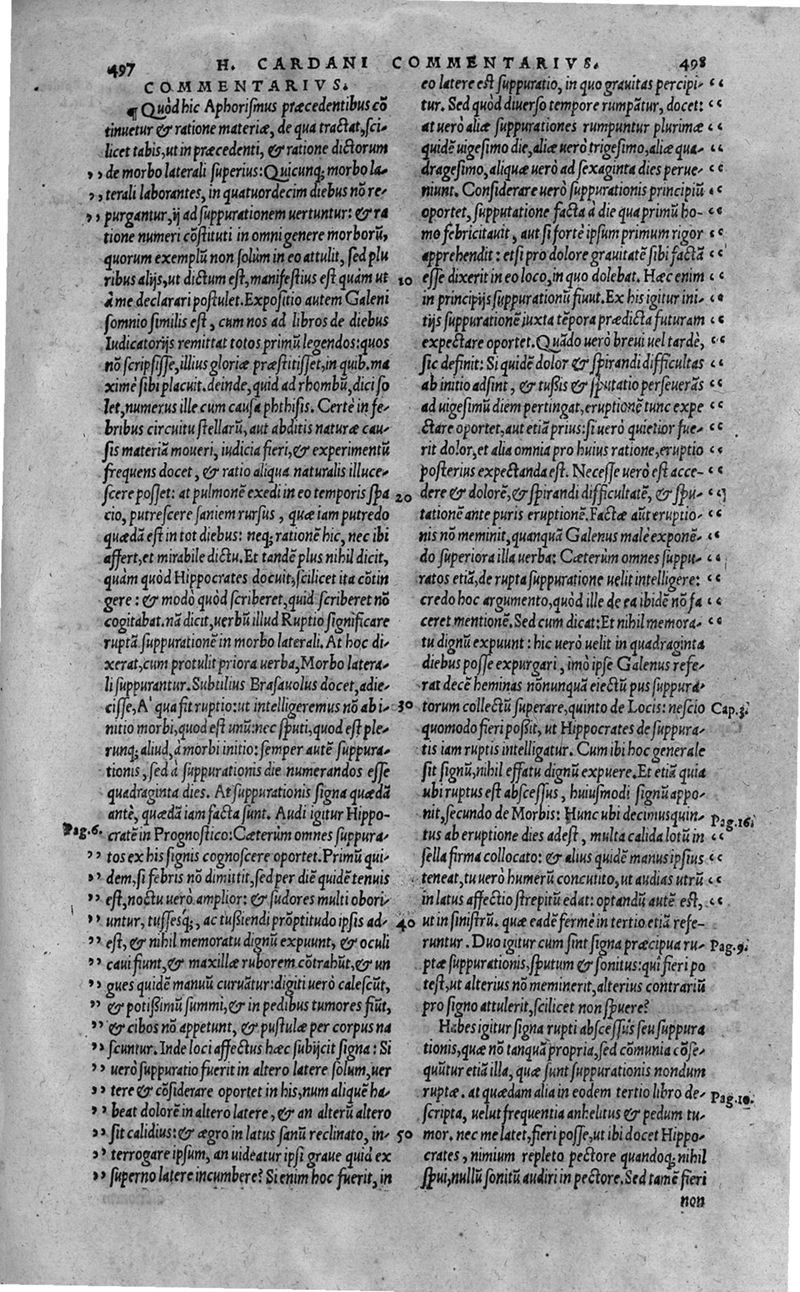 497 H. CARDANI COMMENTARIVS. 498
COMMENTARIVS.
¶ Quòd hic Aphorismus præcedentibus cō
tinuetur & ratione materiæ, de qua tractat, sci-
licet tabis, ut in præcedenti, & ratione dictorum
,, de morbo laterali superius: Quicunq; morbo la-
,, terali laborantes, in quatuordecim diebus nō re-
,, purgantur, ij ad suppurationem uertuntur: & ra
tione numeri cōstituti in omni genere morborū,
quorum exemplū non solùm in eo attulit, sed plu
ribus alijs, ut dictum est, manifestius est quàm ut
à me declarari postulet. Expositio autem Galeni
somnio similis est, cum nos ad libros de diebus
Iudicatorijs remittat totos primū legendos: quos
nō scripsisse, illius gloriæ præstitisset, in quib. ma
ximè sibi placuit. deinde, quid ad rhombū, dici so
let, numerus ille cum causa phthisis. Certè in fe-
bribus circuitu stellarū, aut abditis naturæ cau-
sis materiā moueri, iudicia fieri, & experimentū
frequens docet, & ratio aliqua naturalis illuce-
scere posset: at pulmonē exedi in eo temporis spa
cio, putrescere saniem rursus, quæ iam putredo
quædā est in tot diebus: neq; rationē hic, nec ibi
affert, et mirabile dictu. Et tandē plus nihil dicit,
quàm quòd Hippocrates docuit, scilicet ita cōtin
gere: & modò quòd scriberet, quid scriberet nō
cogitabat. nā dicit, uerbū illud Ruptio significare
ruptā suppurationē in morbo laterali. At hoc di-
xerat, cum protulit priora uerba, Morbo latera-
li suppurantur. Subtilius Brasauolus docet, adie-
cisse, A' qua fit ruptio: ut intelligeremus nō ab i-
nitio morbi, quod est unū: nec sputi, quod est ple-
runq; aliud, à morbi initio: semper autē suppura-
tionis, sed à suppurationis die numerandos esse
quadraginta dies. At suppurationis signa quædā
antè, quædā iam facta sunt. Audi igitur Hippo-
Pag. 6. cratē in Prognostico: Cæterùm omnes suppura-
,, tos ex his signis cognoscere oportet. Primū qui-
,, dem, si febris nō dimittit, sed per diē quidē tenuis
,, est, noctu uerò amplior: & sudores multi obori-
,, untur, tussesq;, ac tussiendi prōptitudo ipsis ad-
,, est, & nihil memoratu dignū expuunt, & oculi
,, caui fiunt, & maxillæ ruborem cōtrahūt, & un
,, gues quidē manuū curuātur: digiti uerò calescūt,
,, & potissimū summi, & in pedibus tumores fiūt,
,, & cibos nō appetunt, & pustulæ per corpus na
,, scuntur. Inde loci affectus hæc subijcit signa: Si
,, uerò suppuratio fuerit in altero latere solum, uer
,, tere & cōsiderare oportet in his, num aliquē ha-
,, beat dolorē in altero latere, & an alterū altero
,, sit calidius: & ægro in latus sanū reclinato, in-
,, terrogare ipsum, an uideatur ipsi graue quid ex
,, superno latere incumbere? Si enim hoc fuerit, in
10
20
30
40
50
eo latere est suppuratio, in quo grauitas percipi- ‘‘
tur. Sed quòd diuerso tempore rumpātur, docet: ‘‘
at uerò aliæ suppurationes rumpuntur plurimæ ‘‘
quidē uigesimo die, aliæ uerò trigesimo, aliæ qua- ‘‘
dragesimo, aliquæ uerò ad sexaginta dies perue- ‘‘
niunt. Considerare uerò suppurationis principiū ‘‘
oportet, supputatione facta à die qua primū ho- ‘‘
mo febricitauit, aut si fortè ipsum primum rigor ‘‘
apprehendit: etsi pro dolore grauitatē sibi factā ‘‘
esse dixerit in eo loco, in quo dolebat. Hæc enim ‘‘
in principijs suppurationū fiunt. Ex his igitur ini- ‘‘
tijs suppurationē iuxta tēpora prædicta futuram ‘‘
expectare oportet. Quādo uerò breui uel tardè, ‘‘
sic definit: Si quidē dolor & spirandi difficultas ‘‘
ab initio adsint, & tußis & sputatio perseuerās ‘‘
ad uigesimū diem pertingat, eruptionē tunc expe ‘‘
ctare oportet, aut etiā prius: si uerò quietior fue- ‘‘
rit dolor, et alia omnia pro huius ratione, eruptio ‘‘
posterius expectanda est. Necesse uerò est acce- ‘‘
dere & dolorē, & spirandi difficultatē, & spu- ‘‘
tationē ante puris eruptionē. Factæ aūt eruptio-
nis nō meminit, quanquā Galenus malè exponē-
do superiora illa uerba: Cæterùm omnes suppu- ‘‘
ratos etiā, de rupta suppuratione uelit intelligere: ‘‘
credo hoc argumento, quòd ille de ea ibidē nō fa ‘‘
ceret mentionē. Sed cum dicat: Et nihil memora- ‘‘
tu dignū expuunt: hic uerò uelit in quadraginta
diebus posse expurgari, imò ipse Galenus refe-
rat decē heminas nōnunquā eiectū pus suppura-
torum collectū superare, quinto de Locis: nescio Cap. 3.
quomodo fieri poßit, ut Hippocrates de suppura-
tis iam ruptis intelligatur. Cum ibi hoc generale
sit signū, nihil effatu dignū expuere. Et etiā quia
ubi ruptus est abscessus, huiusmodi signū appo-
nit, secundo de Morbis: Hunc ubi decimusquin- Pag. 16.
tus ab eruptione dies adest, multa calida lotū in ‘‘
sella firma collocato: & alius quidē manus ipsius ‘‘
teneat, tu uerò humerū concutito, ut audias utrū ‘‘
in latus affectio strepitū edat: optandū autē est, ‘‘
ut in sinistrū. quæ eadē fermè in tertio etiā refe-
runtur. Duo igitur cum sint signa præcipua ru- Pag. 9.
ptæ suppurationis, sputum & sonitus: qui fieri po
test, ut alterius nō meminerit, alterius contrariū
pro signo attulerit, scilicet non spuere?
Habes igitur signa rupti abscessus seu suppura
tionis, quæ nō tanquā propria, sed cōmunia cōse-
quūtur etiā illa, quæ sunt suppurationis nondum
ruptæ. at quædam alia in eodem tertio libro de- Pag. 10.
scripta, uelut frequentia anhelitus & pedum tu-
mor. nec me latet, fieri posse, ut ibi docet Hippo-
crates, nimium repleto pectore quandoq; nihil
spui, nullū sonitū audiri in pectore. Sed tamē fieri
non